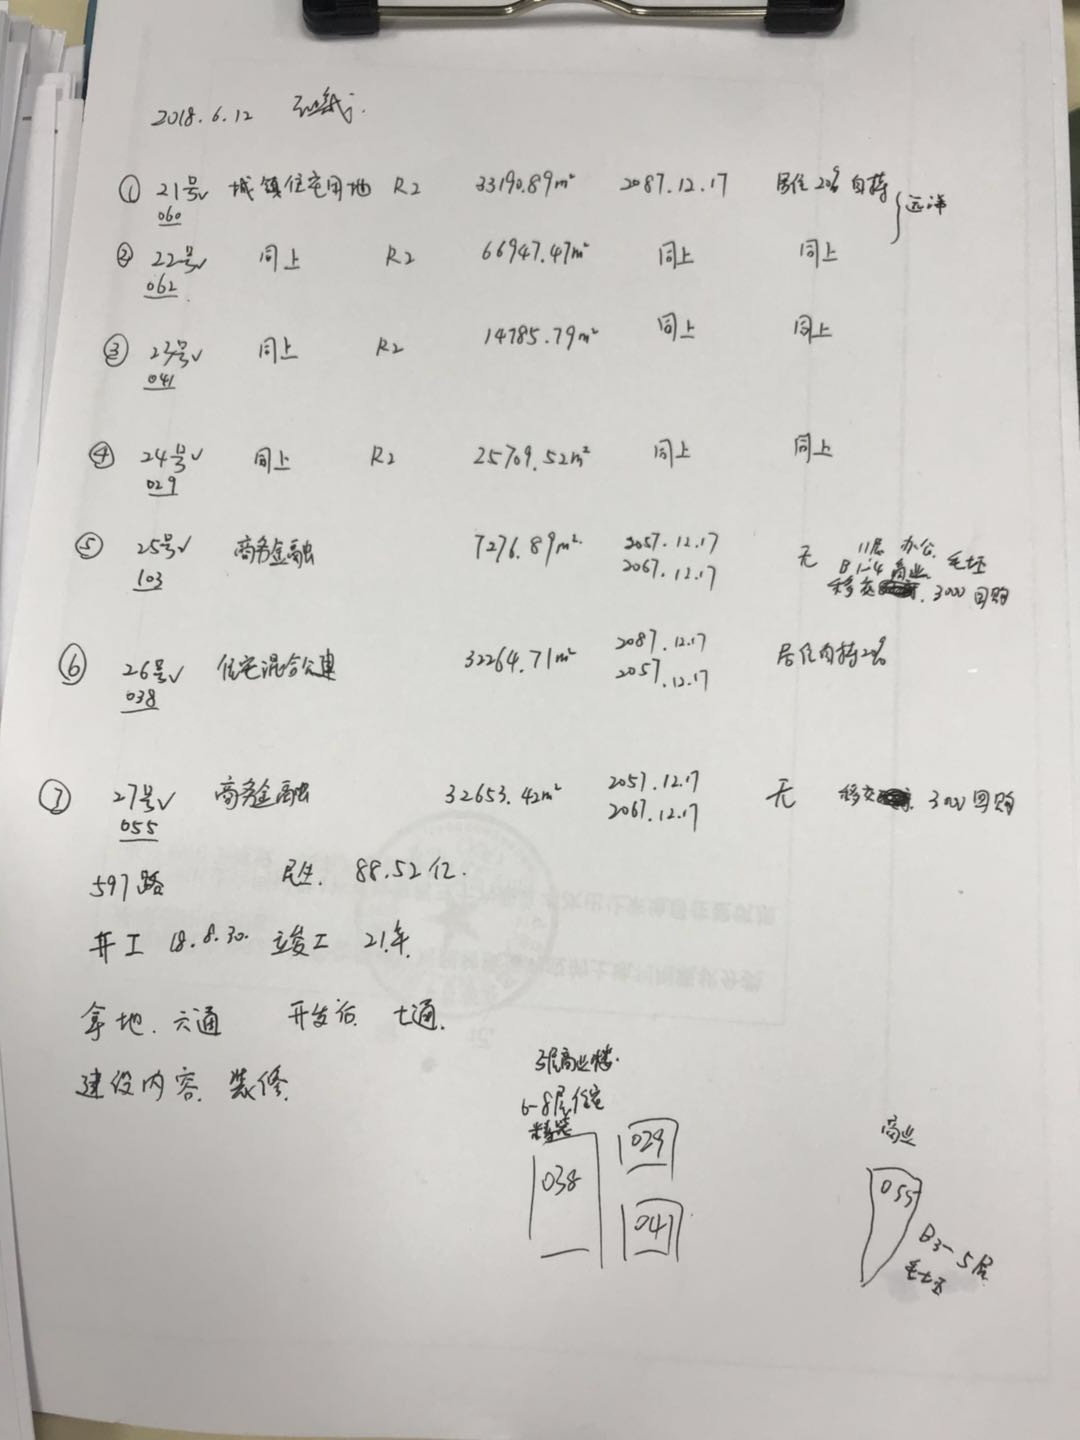 2018.6.12
① 21号√ 城镇住宅用地 R2 33190.89m² 2087.12.17 居住20%自持 远洋
060
② 22号√ 同上 R2 66947.47m² 同上 同上
062
③ 23号√ 同上 R2 14785.79m² 同上 同上
041
④ 24号√ 同上 R2 25709.52m² 同上 同上
029
⑤ 25号√ 商务金融 7276.89m² 2057.12.17 无 11层 办公 毛坯
103 2067.12.17 B1-4 商业
移交 3000回购
⑥ 26号√ 住宅混合公建 32264.71m² 2087.12.17 居住自持20%
038 2057.12.17
⑦ 27号√ 商务金融 32653.42m² 2057.12.17 无 移交 3000回购
055 2067.12.17
597路 民生. 88.52亿.
开工 18.8.30. 竣工 21年.
拿地. 六通 开发后. 七通.
建设内容. 装修.
3层商业楼.
6-8层住宅
精装
038
029
041
商业
055
B3-5层
毛坯